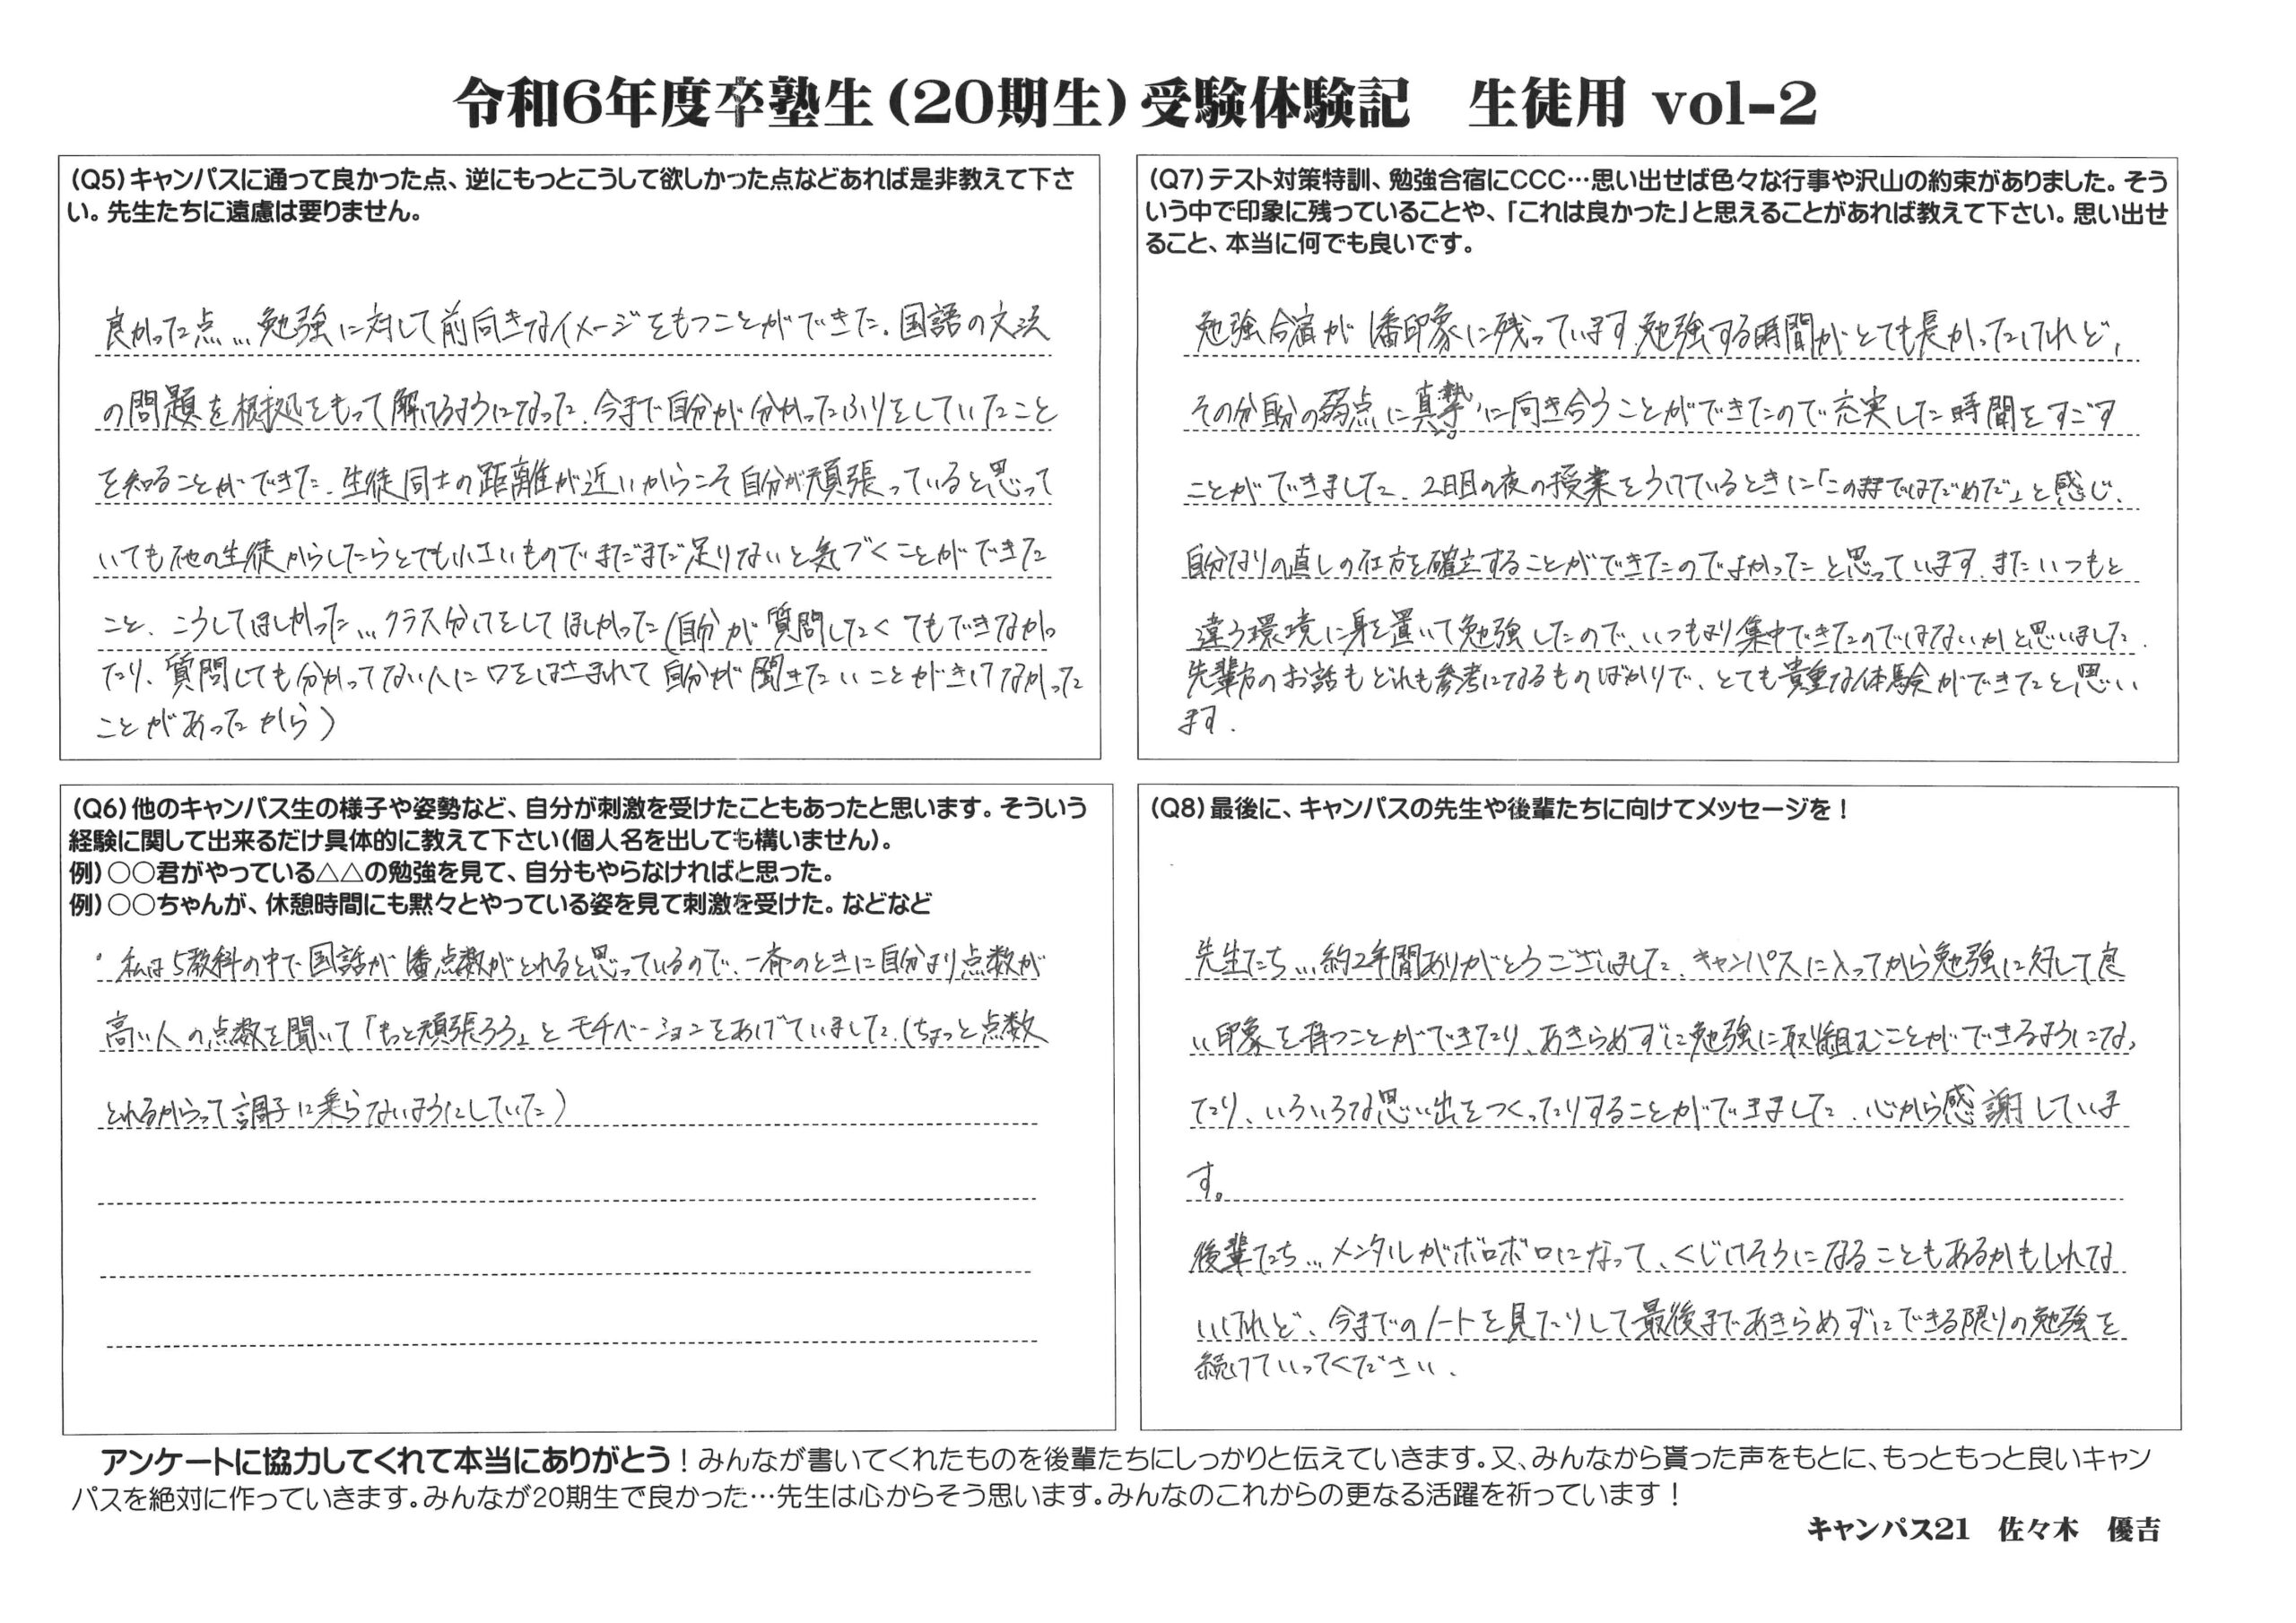 令和6年度卒塾生(20期生)受験体験記　生徒用 vol-2
(Q5)キャンパスに通って良かった点、逆にもっとこうして欲しかった点などあれば是非教えて下さ
い。先生たちに遠慮は要りません。
良かった点…勉強に対して前向きなイメージをもつことができた。国語の文法
の問題を根拠をもって解けるようになった。今まで自分が分かったふりをしていたこと
を知ることができた。生徒同士の距離が近いからこそ自分が頑張っていると思って
いても他の生徒からしたらとても小さいものでまだまだ足りないと気づくことができた
こと、こうしてほしかった…クラス分けをしてほしかった(自分が質問したくてもできなかっ
たり、質問しても分かってない人に口をはさまれて自分が聞きたいことがきけてなかった
ことがあったから)
(Q6)他のキャンパス生の様子や姿勢など、自分が刺激を受けたこともあったと思います。そういう
経験に関して出来るだけ具体的に教えて下さい(個人名を出しても構いません)。
例)○○君がやっている△△の勉強を見て、自分もやらなければと思った。
例)○○ちゃんが、休憩時間にも黙々とやっている姿を見て刺激を受けた。などなど
・私は5教科の中で国語が1番点数がとれると思っているので、一斉のときに自分より点数が
高い人の点数を聞いて「もっと頑張ろう」とモチベーションをあげていました。(ちょっと点数
とれるからって調子に乗らないようにしていた)
(Q7)テスト対策特訓、勉強合宿にCCC…思い出せば色々な行事や沢山の約束がありました。そう
いう中で印象に残っていることや、「これは良かった」と思えることがあれば教えて下さい。思い出せ
ること、本当に何でも良いです。
勉強合宿が1番印象に残っています。勉強する時間がとても長かったけれど、
その分自分の弱点に真摯に向き合うことができたので充実した時間をすごす
ことができました。2日目の夜の授業をうけているときに「このままではだめだ」と感じ、
自分なりの直しの仕方を確立することができたのでよかったと思っています。またいつもと
違う環境に身を置いて勉強したので、いつもより集中できたのではないかと思いました。
先輩方のお話もどれも参考になるものばかりで、とても貴重な体験ができたと思い
ます。
(Q8)最後に、キャンパスの先生や後輩たちに向けてメッセージを！
先生たち…約2年間ありがとうございました。キャンパスに入ってから勉強に対して良
い印象を持つことができたり、あきらめずに勉強に取り組むことができるようになっ
たり、いろいろな思い出をつくったりすることができました。心から感謝していま
す。
後輩たち…メンタルがボロボロになって、くじけそうになることもあるかもしれな
いけれど、今までのノートを見たりして最後まであきらめずにできる限りの勉強を
続けていってください。
アンケートに協力してくれて本当にありがとう！みんなが書いてくれたものを後輩たちにしっかりと伝えていきます。又、みんなから貰った声をもとに、もっともっと良いキャン
パスを絶対に作っていきます。みんなが20期生で良かった…先生は心からそう思います。みんなのこれからの更なる活躍を祈っています！
キャンパス21　佐々木　優吉